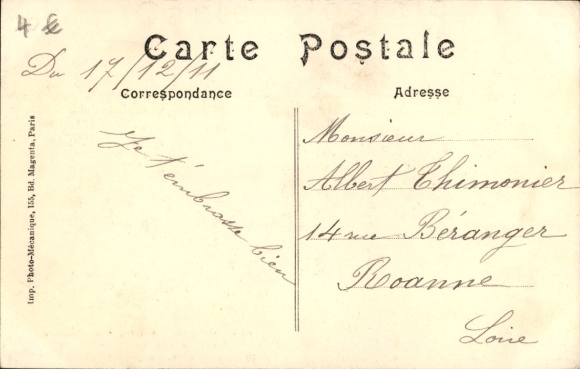 4 €
Carte Postale
Du 17/12/11
Correspondance
Adresse
Je t'embrasse bien
Monsieur
Albert Thimonier
14 rue Béranger
Roanne
Loire
Imp. Photo-Mécanique, 155, Bd. Magenta, Paris